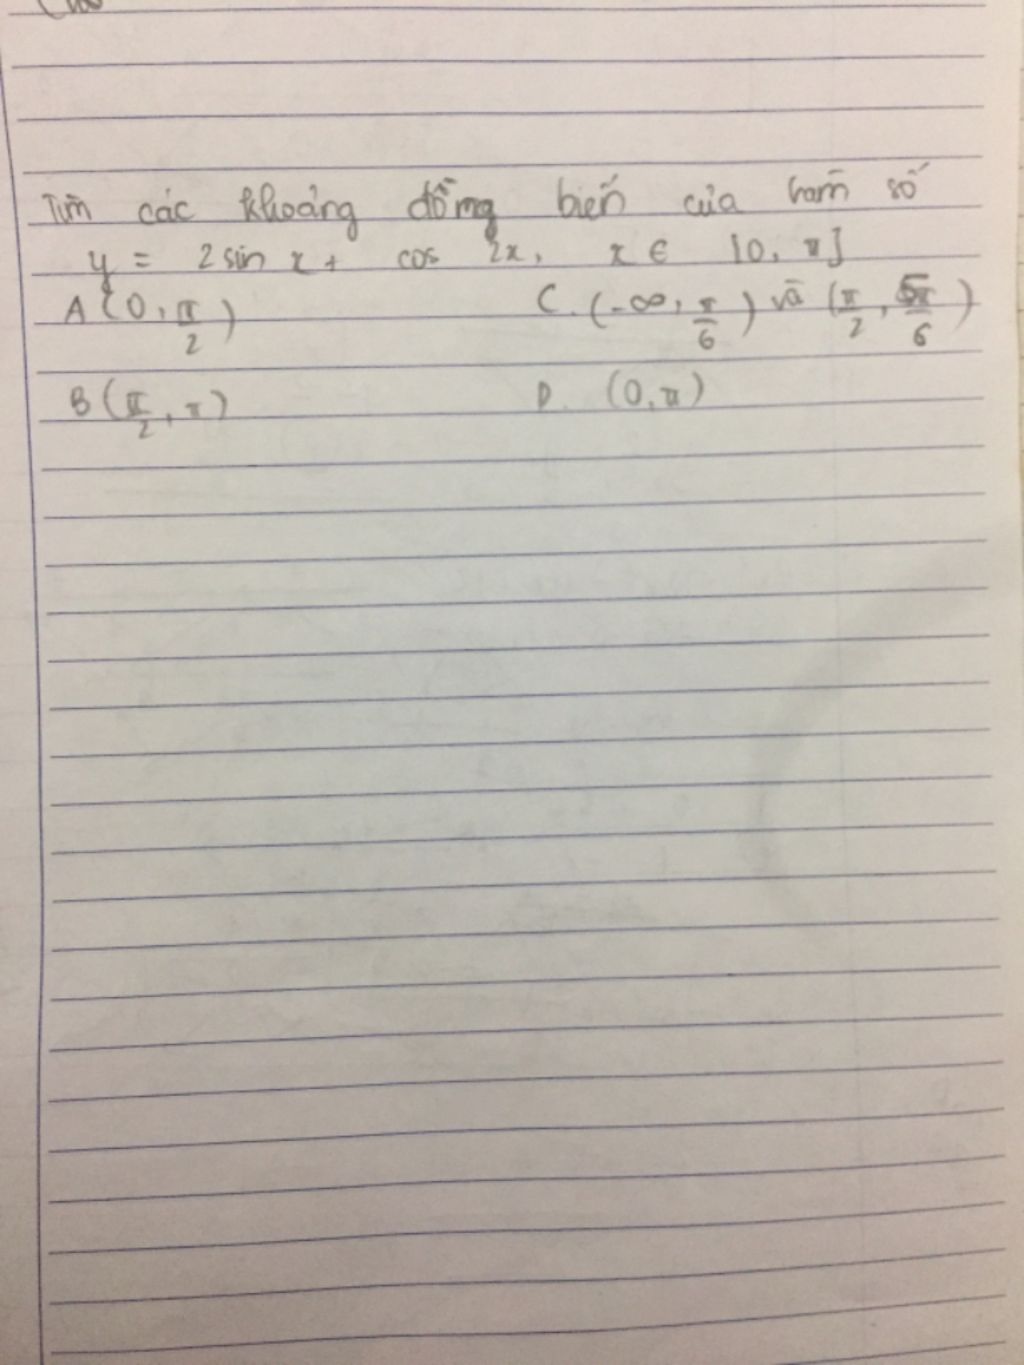 Tìm các khoảng đồng biến của hàm số
y = 2 sin x + cos 2x, x ∈ [0, π]
A (0, π/2) C. (-∞, π/6) và (π/2, 5π/6)
B (π/2, π) D. (0, π)